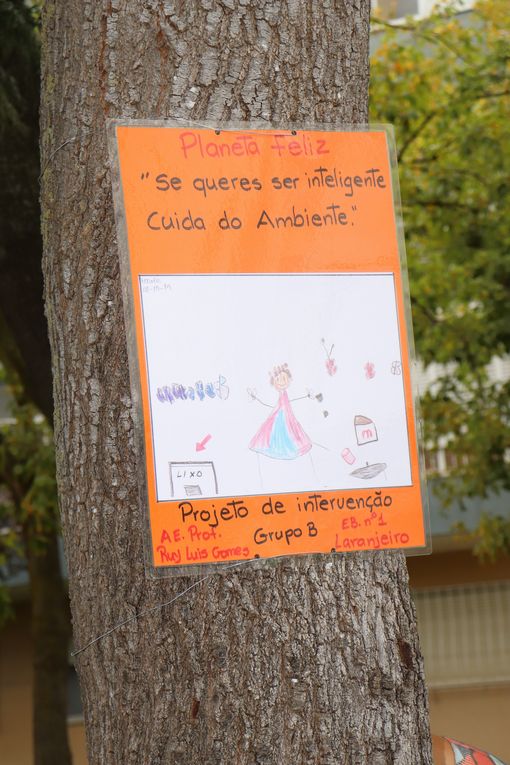 Planeta Feliz
"Se queres ser inteligente
Cuida do Ambiente."
LIXO
m
Projeto de intervenção
Grupo B
A.E. Prof.
Ruy Luis Gomes
E.B. nº 1
Laranjeiro